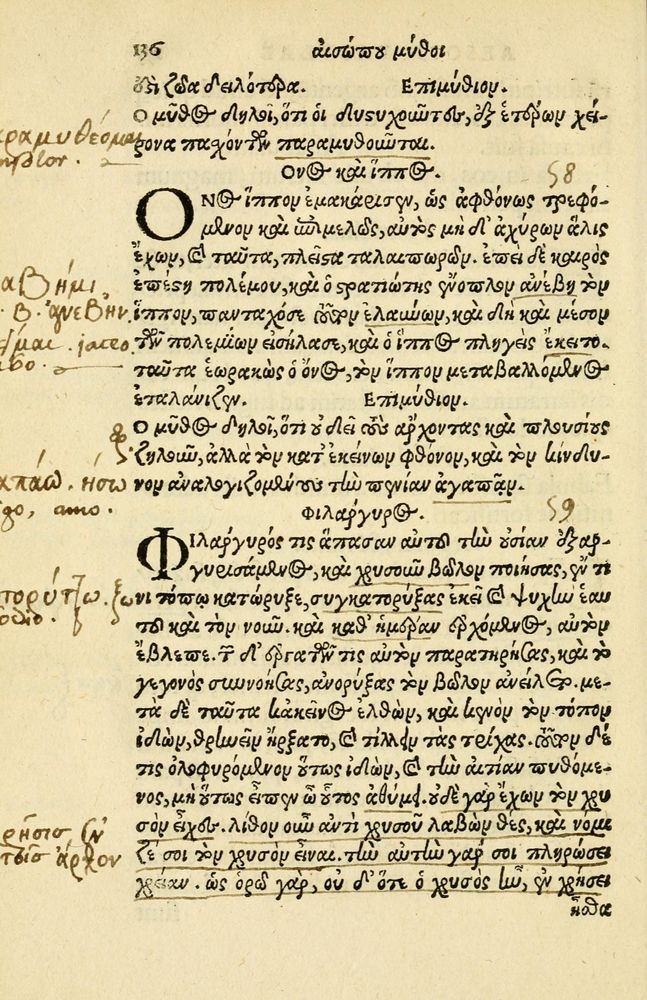 136 αἰσώπου μύθοι
ἐςὶ ζῶα δειλότερα. Επιμύθιον.
Ο μῦθος δηλοῖ, ὅτι οἱ δυςυχοῦντες, ἐξ ἑτέρων χεί-
ρονα παχόντων παραμυθοῦνται.
παραμυθέομαι
Ονος καὶ ἵππος. 58
ΟΝος ἵππον ἐμακάριζεν, ὡς ἀφθόνως τρεφό-
μενον καὶ ἐπιμελῶς, αὐτὸς μηδ' ἀχύρων ἅλις
ἔχων, καὶ ταῦτα, πλεῖςα ταλαιπωρῶν. ἐπεὶ δὲ καιρὸς
ἐπέςη πολέμου, καὶ ὁ ςρατιώτης ἔνοπλον ἀνέβη τὸν
ἵππον, πανταχόσε τοῦτον ἐλαύνων, καὶ δὴ καὶ μέσον
τῶν πολεμίων εἰσήλασε, καὶ ὁ ἵππος πληγεὶς ἔκειτο.
ταῦτα ἑωρακὼς ὁ ὄνος, τὸν ἵππον μεταβαλλόμενος
ἐταλάνιζεν. Επιμύθιον.
β. ἀνέβην.
jaceo
Ο μῦθος δηλοῖ, ὅτι οὐ δεῖ τοὺς ἄρχοντας καὶ πλουσίους
ζηλοῦν, ἀλλὰ τὸν κατ' ἐκείνων φθόνον, καὶ τὸν κίνδυ-
νον ἀναλογιζομένους τὴν πενίαν ἀγαπᾶν.
amo.
Φιλάργυρος. 59
ΦΙλάργυρός τις ἅπασαν αὐτοῦ τὴν οὐσίαν ἐξαρ-
γυρισάμενος, καὶ χρυσοῦν βῶλον ποιήσας, ἔν τι
νι τόπῳ κατώρυξε, συγκατορύξας ἐκεῖ καὶ ψυχὴν ἑαυ
τοῦ καὶ τὸν νοῦν. καὶ καθ' ἡμέραν ἐρχόμενος, αὐτὸν
ἔβλεπε. τῶν δ' ἐργατῶν τις αὐτὸν παρατηρήσας, καὶ τὸ
γεγονὸς συννοήσας, ἀνορύξας τὸν βῶλον ἀνείλετο. με-
τὰ δὲ ταῦτα κἀκεῖνος ἐλθὼν, καὶ κενὸν τὸν τόπον
ἰδὼν, θρηνεῖν ἤρξατο, καὶ τίλλειν τὰς τρίχας. τοῦτον δέ
τις ὀλοφυρόμενον οὕτως ἰδὼν, καὶ τὴν αἰτίαν πυθόμε-
νος, μὴ οὕτως εἶπεν ὦ οὗτος ἀθύμει. οὐδὲ γὰρ ἔχων τὸν χρυ
σὸν εἶχες. λίθον οὖν ἀντὶ χρυσοῦ λαβὼν θὲς, καὶ νόμι
ζέ σοι τὸν χρυσὸν εἶναι. τὴν αὐτὴν γάρ σοι πληρώσει
χρείαν. ὡς ὁρῶ γὰρ, οὐ δ' ὅτε ὁ χρυσὸς ἦν, ἐν χρήσει
ἦσθα